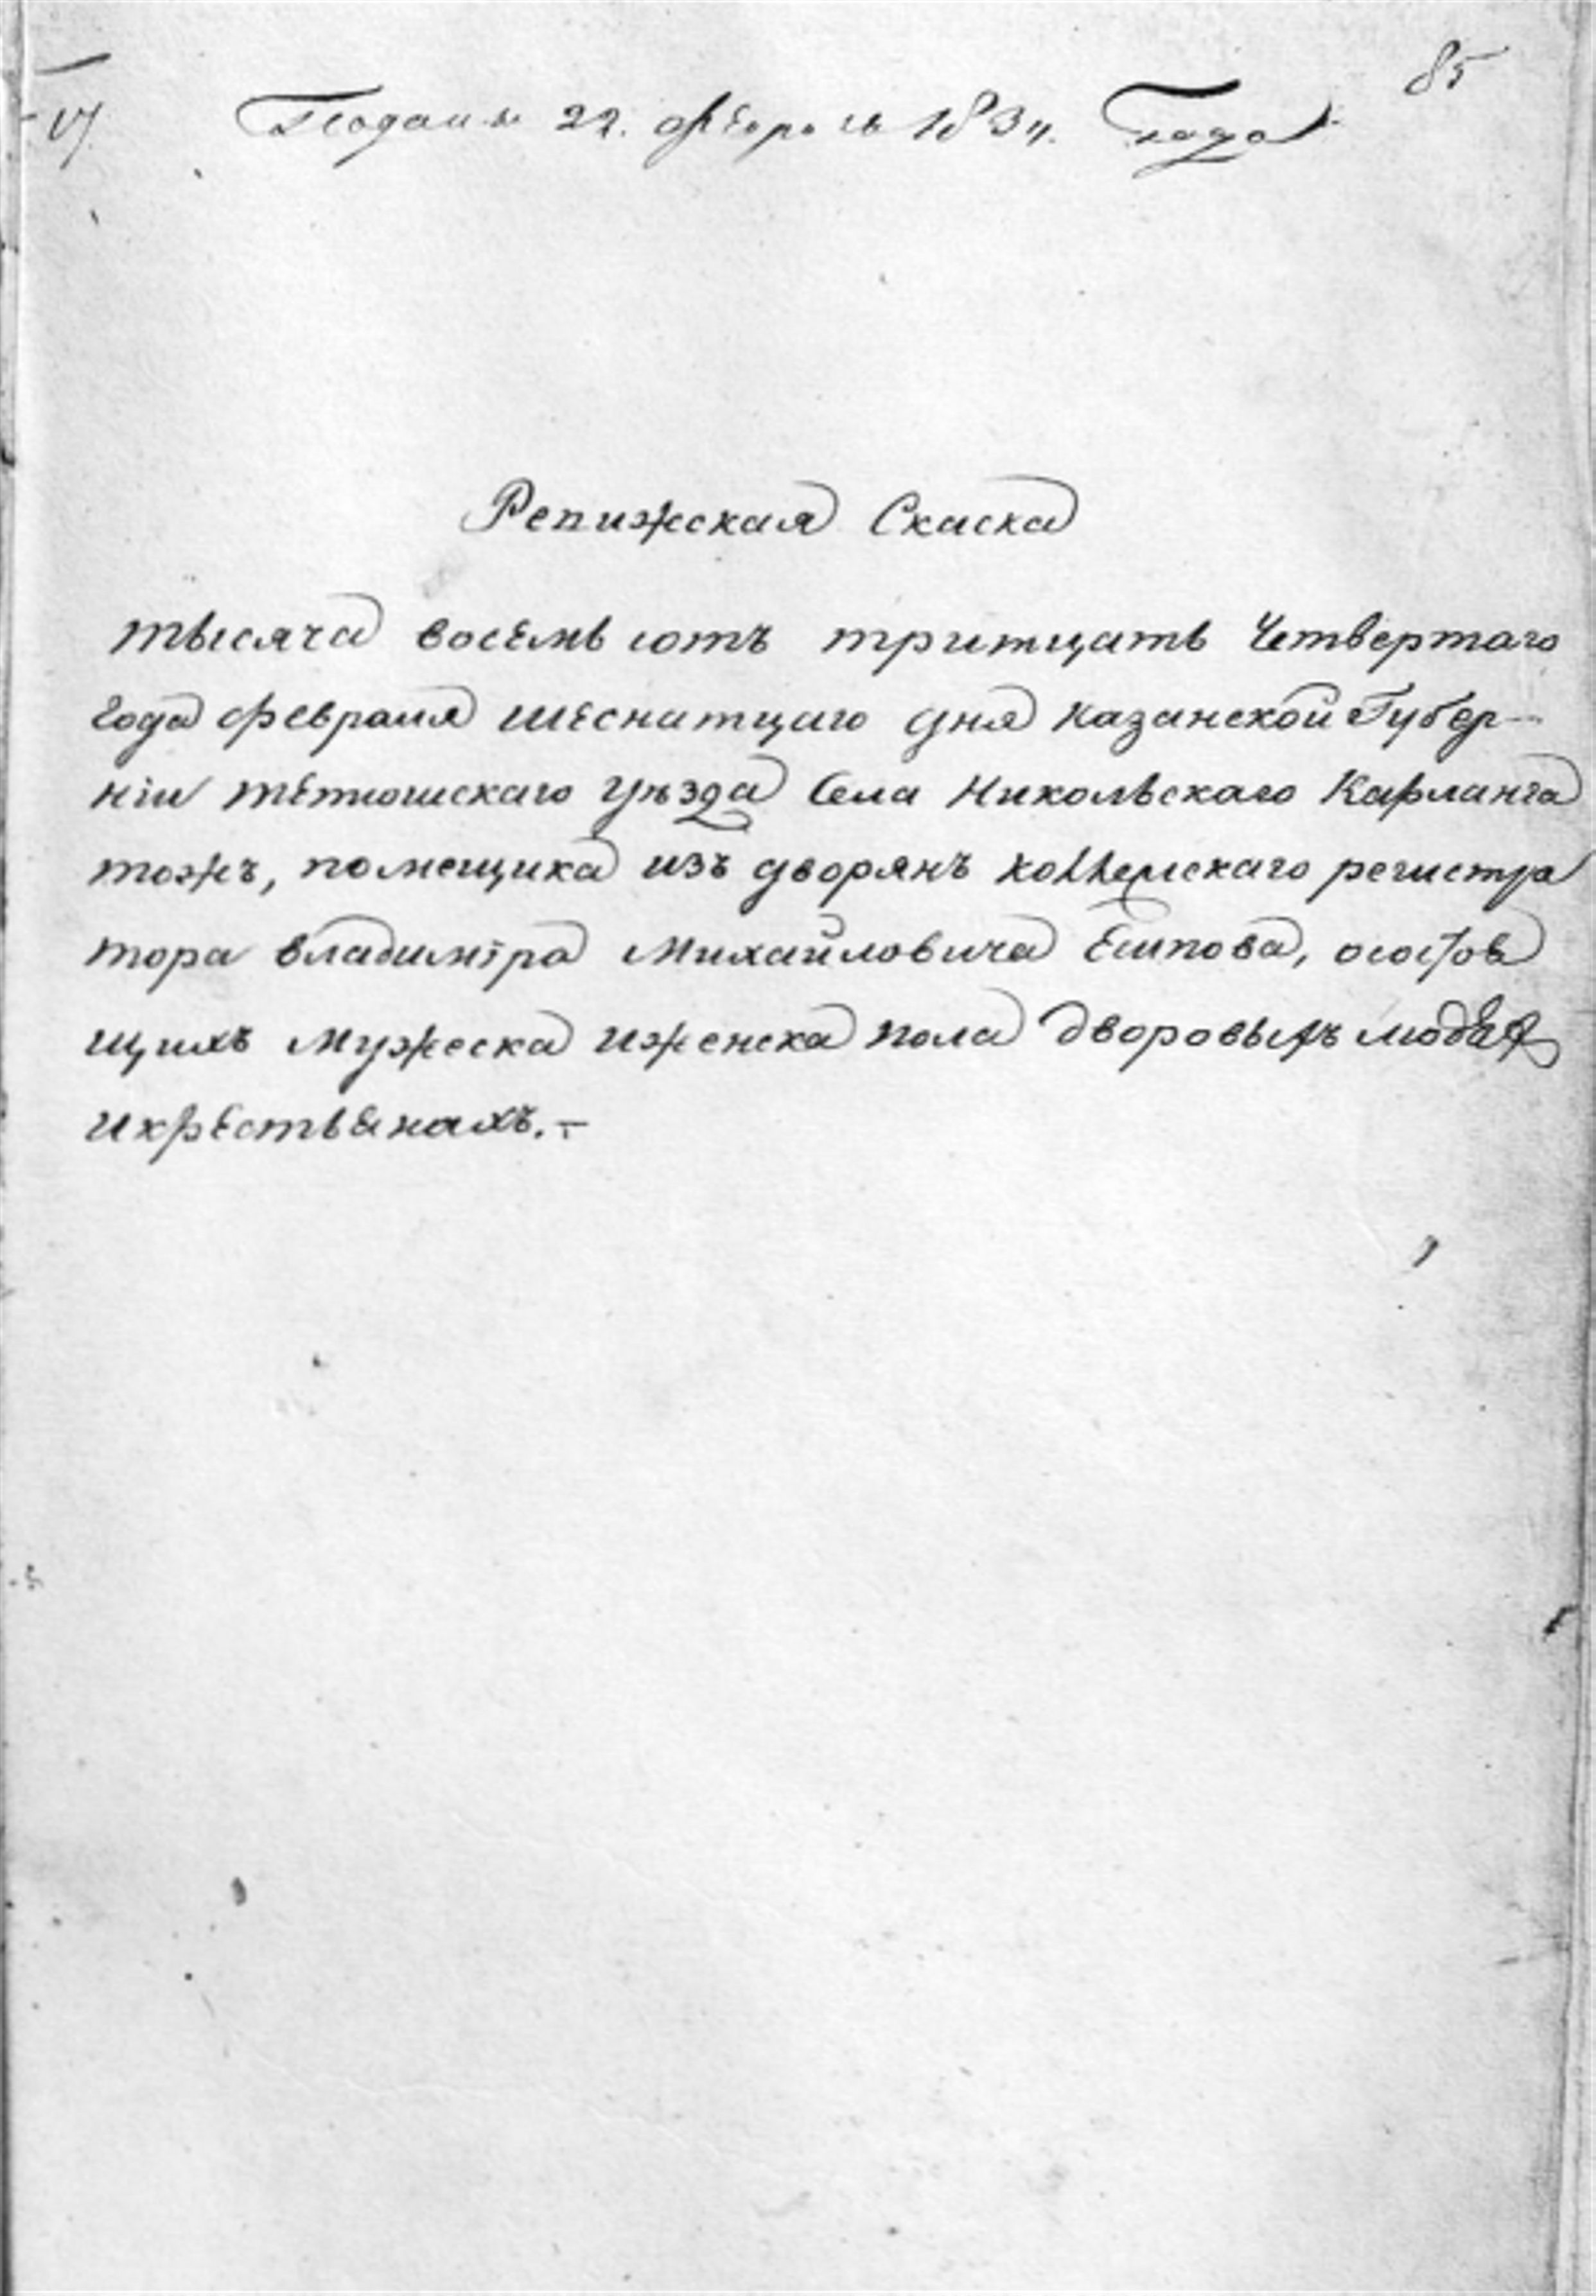 85
17
Подана 22. февраля 1834. Года
Репижская Скаска
тысяча восемь сотъ тритцать Четвертаго
Года февраля шеснатцаго дня казанской Губер-
ніи тетюшскаго уѣзда Села Никольскаго Карланга
тожъ, помещика изъ дворянъ коллежскаго регистра
тора владиміра Михайловича Есипова, осостов
щихъ Мужеска иженска пола дворовыхъ людех
икрествянахъ.-